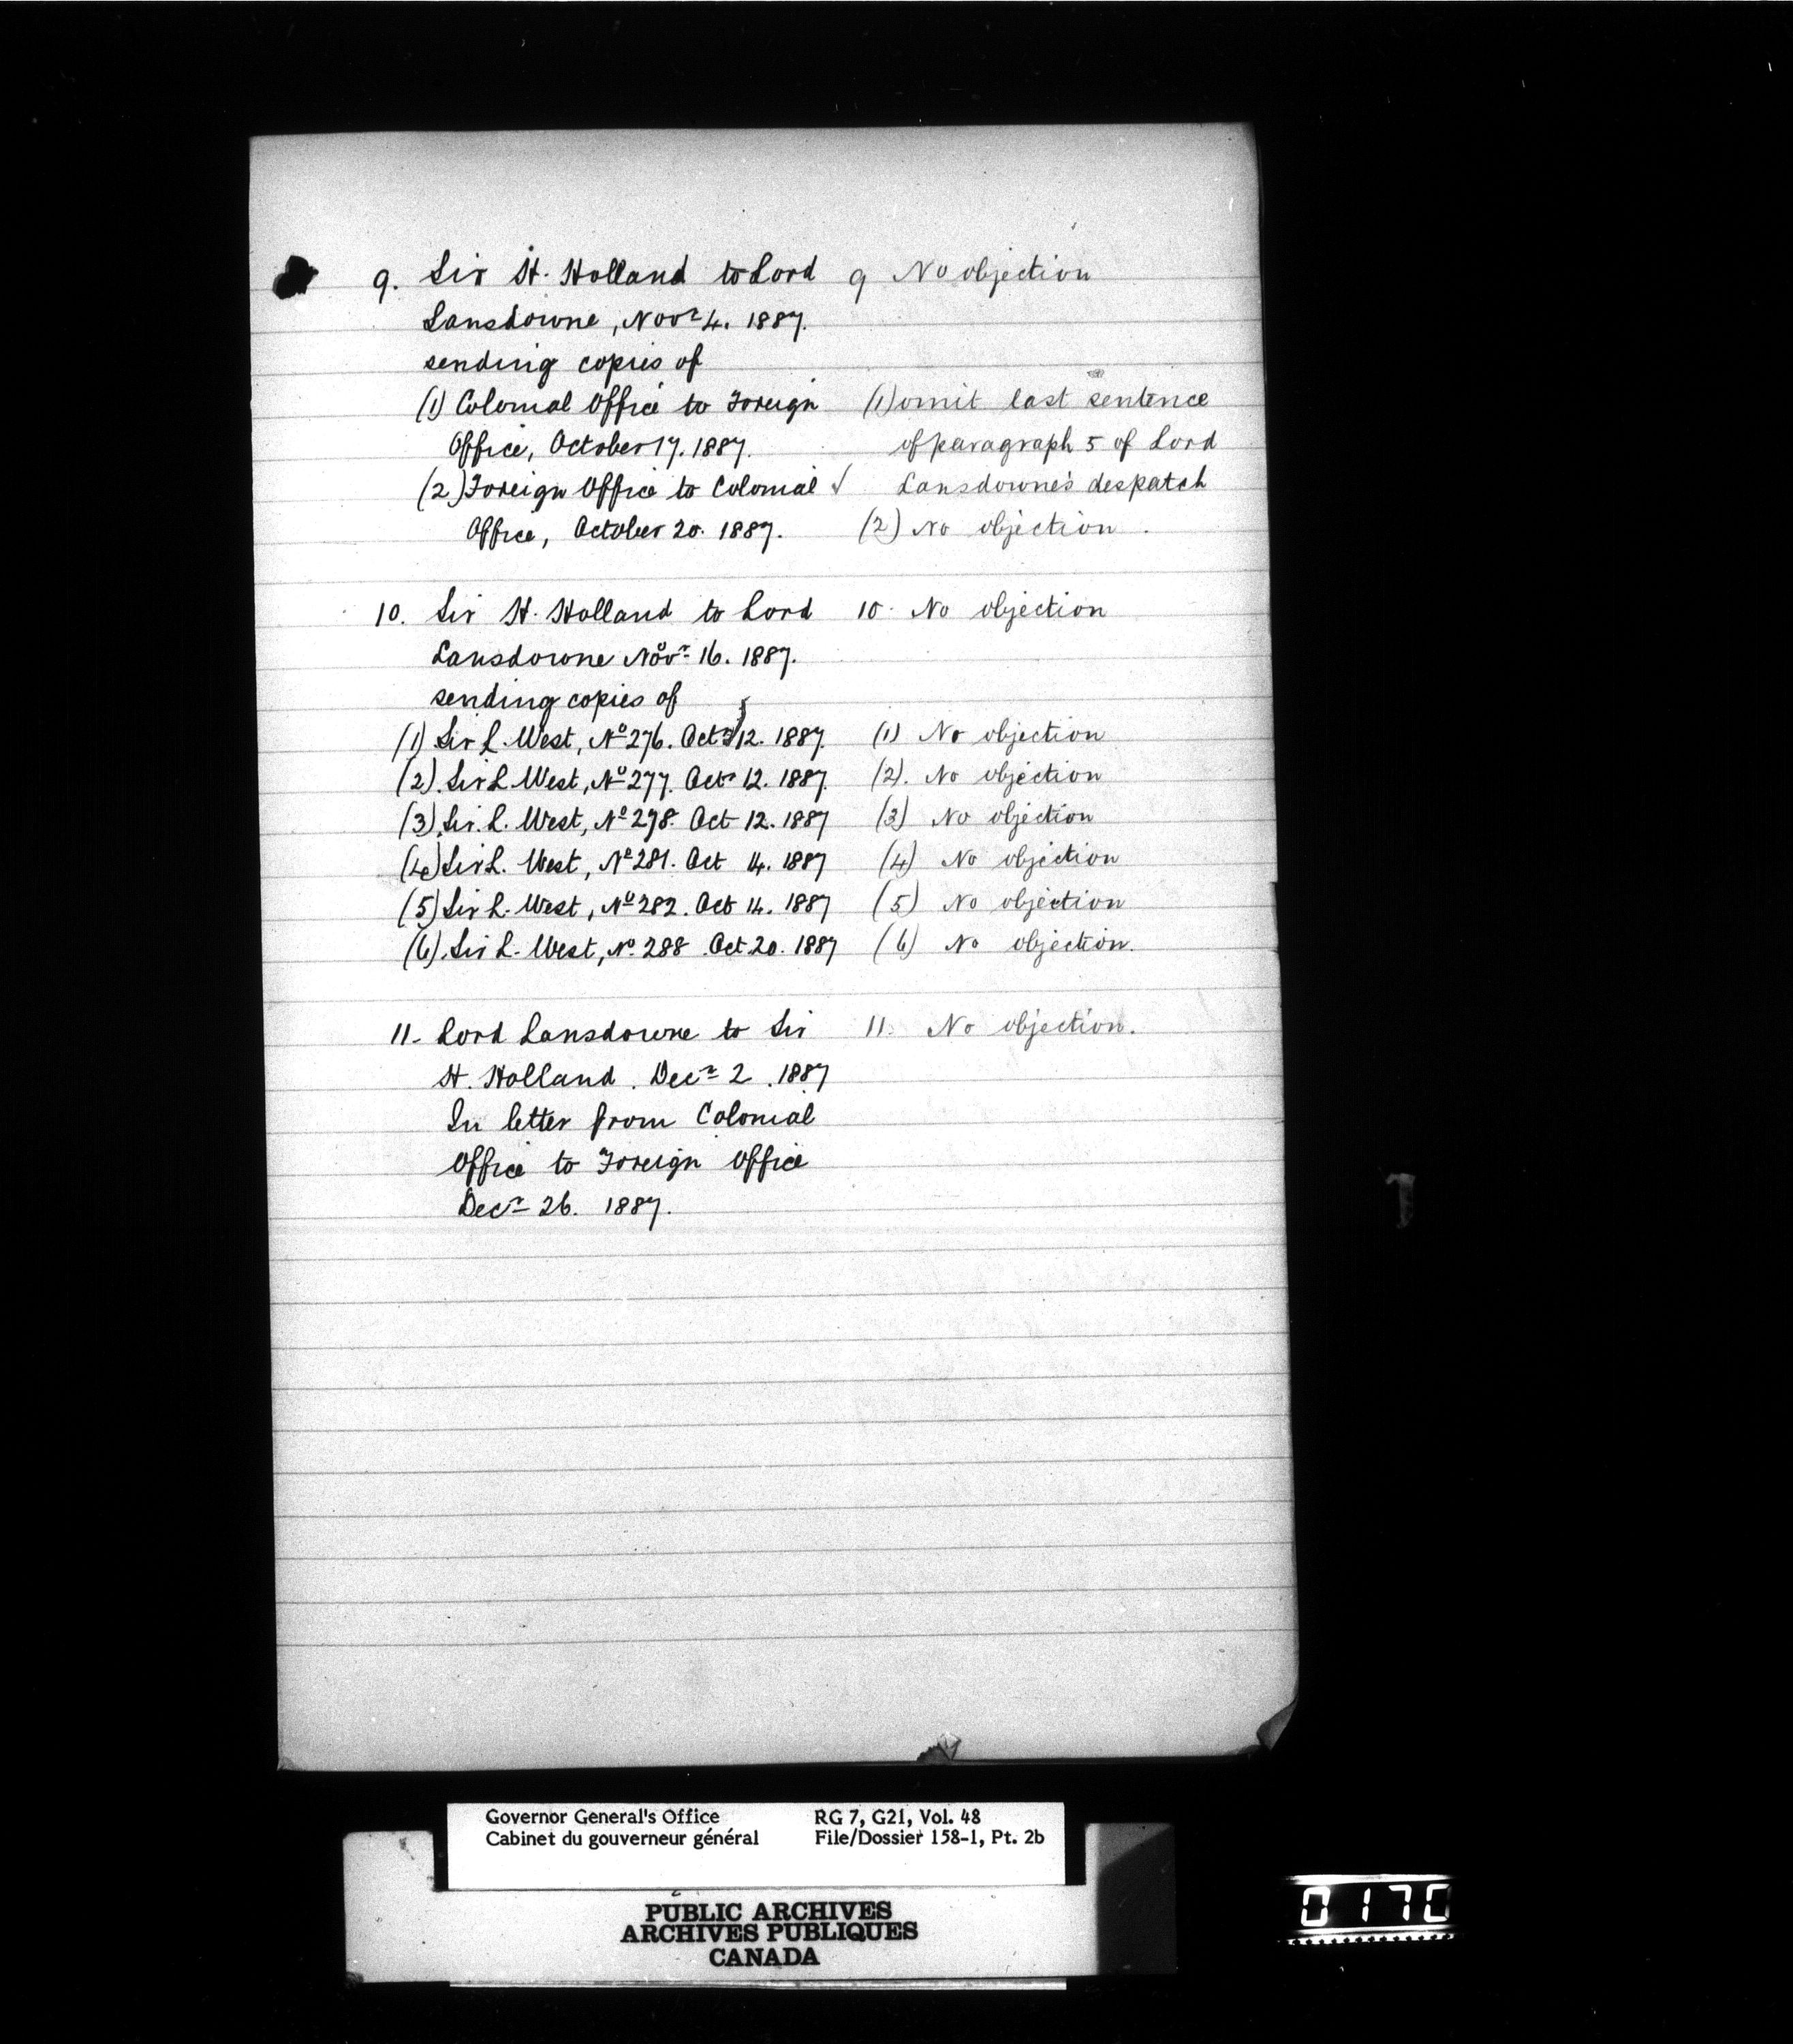 9. Sir H. Holland to Lord 9 No objection
Lansdowne, Novr 4. 1887.
sending copies of
(1) Colonial Office to Foreign (1) omit last sentence
Office, October 17. 1887. of paragraph 5 of Lord
(2) Foreign Office to Colonial √ Lansdowne's despatch
Office, October 20. 1887. (2) No objection.
10. Sir H. Holland to Lord 10. No objection
Lansdowne Novr 16. 1887.
sending copies of
(1) Sir L. West, No 276. Octr 12. 1887. (1) No objection
(2). Sir L West, No 277. Octr 12. 1887. (2). No objection
(3). Sir. L. West, No 278. Oct 12. 1887 (3) No objection
(4) Sir L. West, No 281. Oct 14. 1887 (4) No objection
(5) Sir L. West, No 282. Oct 14. 1887 (5) No objection
(6). Sir L. West, No. 288 Oct 20. 1887 (6) No objection.
11. Lord Lansdowne to Sir 11. No objection.
H. Holland. Decr 2. 1887
In letter from Colonial
Office to Foreign Office
Decr 26. 1887.
Governor General's Office RG 7, G21, Vol. 48
Cabinet du gouverneur général File/Dossier 158-1, Pt. 2b
PUBLIC ARCHIVES
ARCHIVES PUBLIQUES
CANADA
0170